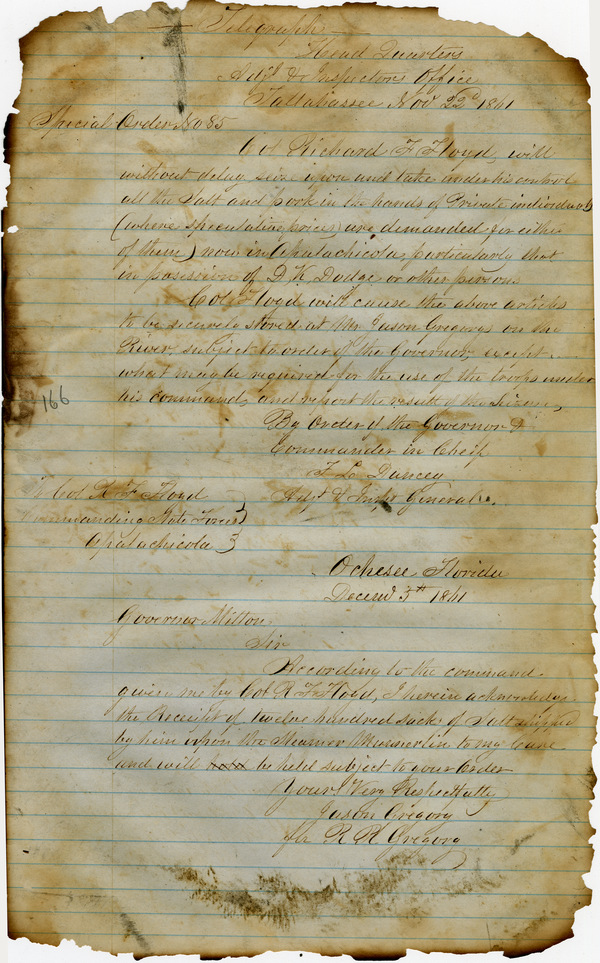 Telegraph
Head Quarters
Adjt & Inspectors Office
Tallahassee Nov 22d 1861
Special Order No 85
Col Richard F Floyd, will
without delay seize upon and take under his control
all the Salt and pork in the hands of Private individuals
(where speculative prices) are demanded for either
of them) now in Apalachicola, particularly that
in possession of D. K. Dodge or other persons
Col Floyd will cause the above articles
to be securely stored at Mr Jason Gregorys on the
River, subject to order of the Governor except
what may be required for the use of the troops under
his command, and report the result of the seizure,
166
By Order of the Governor &
Commander in Cheif
F L Dancey
Adjt & Inspt General
To Col R F Floyd
Commanding State Forces
Apalachicola
Ochesee Florida
Decem 5th 1861
Governor Milton
Sir
According to the command
given me by Col R F Floyd, I herein acknowledge
the Receipt of twelve hundred sack of Salt shipped
by him upon the Steamer Munnerlin to my Care
and will be held subject to your Order
Your Very Respectfully
Jason Gregory
for R R Gregory